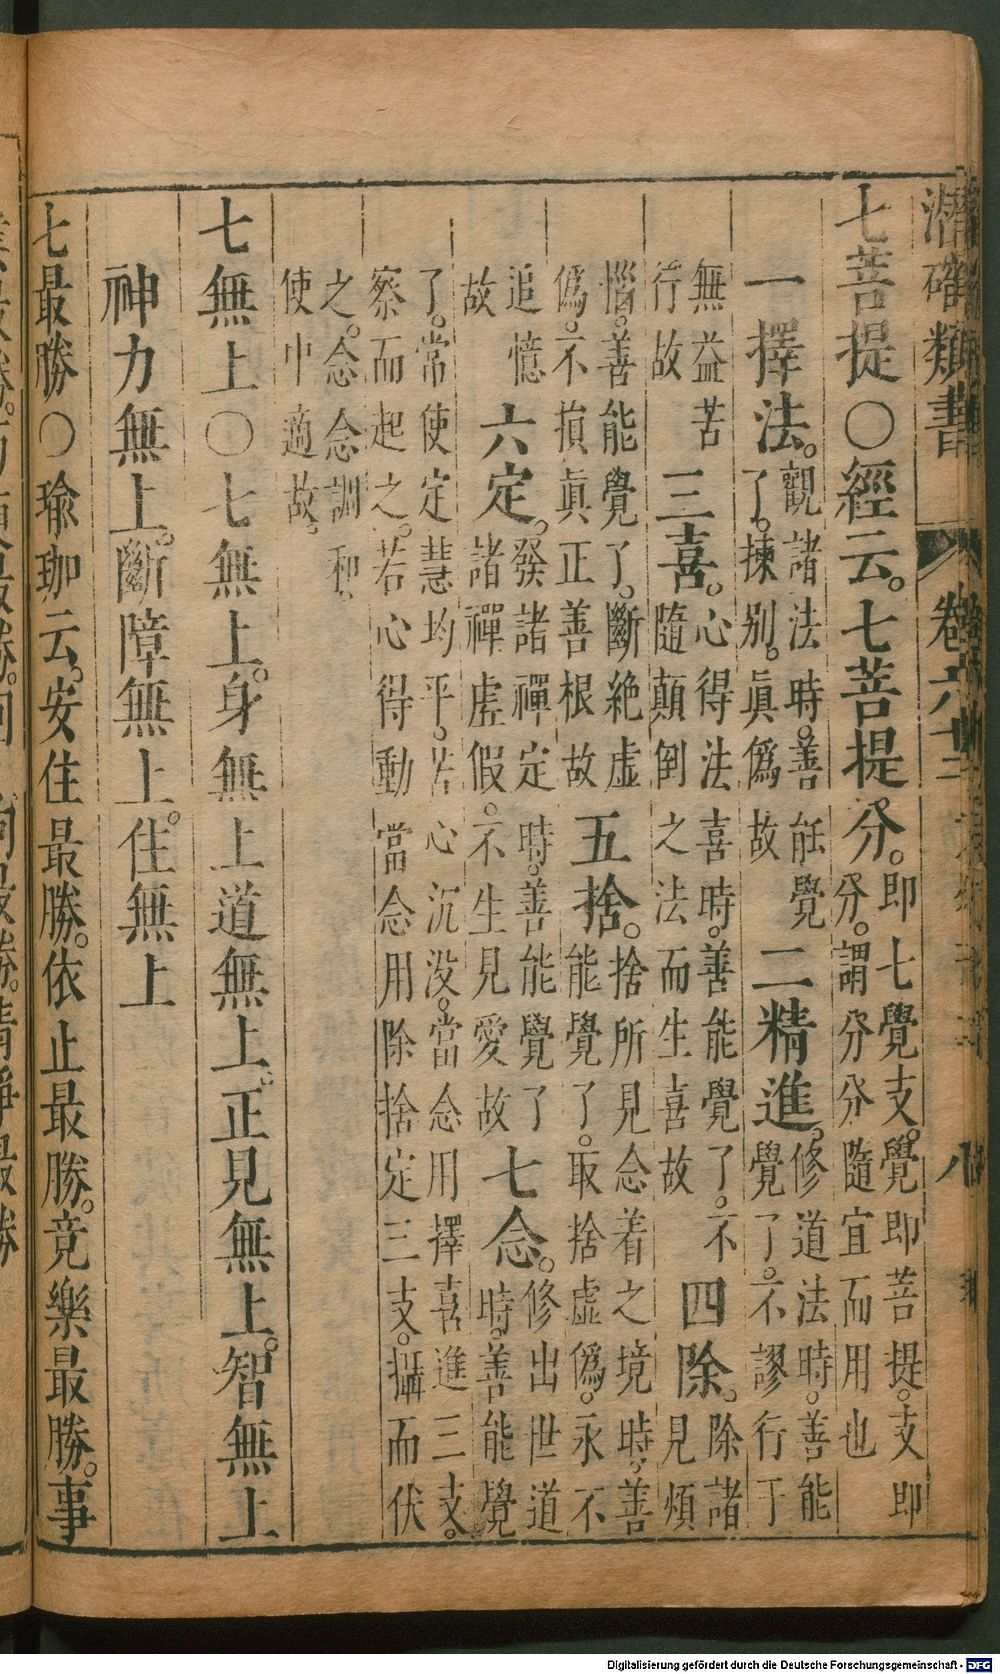 潛確類書 卷六十三 八
七菩提〇經云。七菩提分。即七覺支。覺即菩提。支即
分。謂分分隨宜而用也
一擇法。觀諸法時。善能覺
了。揀別。眞僞故
二精進。修道法時。善能
覺了。不謬行于
無益苦
行故
三喜。心得法喜時。善能覺了。不
隨顛倒之法而生喜故
四除。除諸
見煩
惱。善能覺了。斷絶虛
僞。不損眞正善根故
五捨。捨所見念着之境時。善
能覺了。取捨虛僞。永不
追憶
故
六定。發諸禪定時。善能覺了
諸禪虛假。不生見愛故
七念。修出世道
時。善能覺
了。常使定慧均平。若心沉没。當念用擇喜進三支。
察而起之。若心得動當念用除捨定三支。攝而伏
之。念念調和。
使中適故。
七無上〇七無上。身無上道無上。正見無上。智無上
神力無上。斷障無上。住無上
七最勝〇瑜珈云。安住最勝。依止最勝。竟樂最勝。事
Digitalisierung gefördert durch die Deutsche Forschungsgemeinschaft - DFG